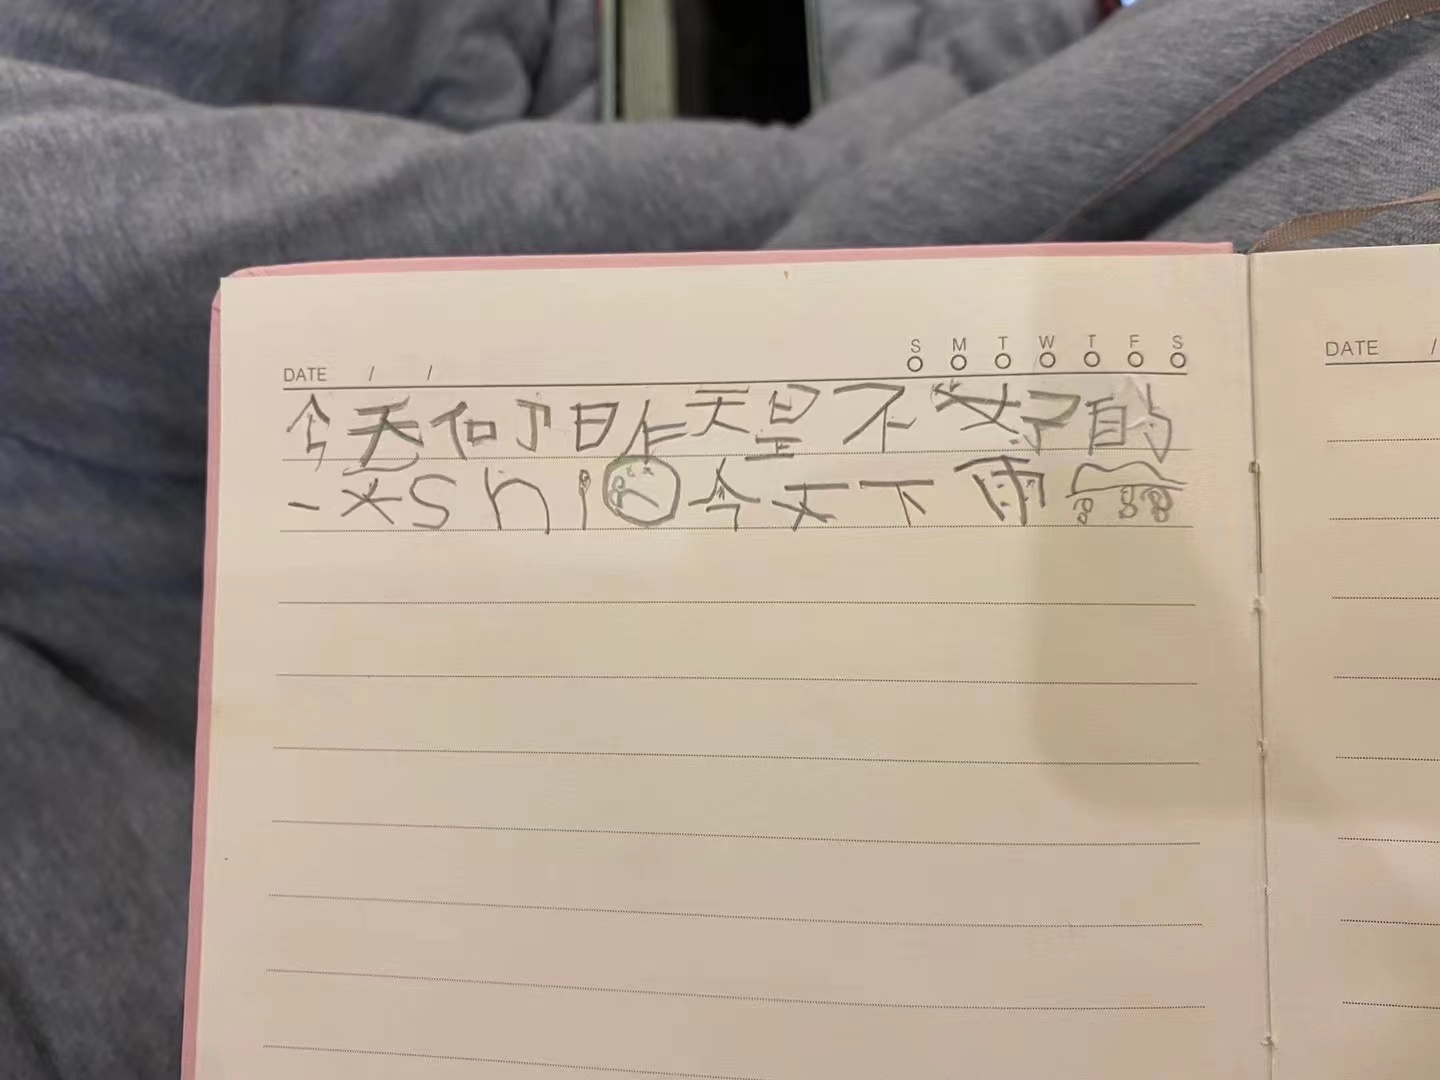 DATE / /
S M T W T F S
今天和了昨天是不好的
一天shi今天下雨
DATE /